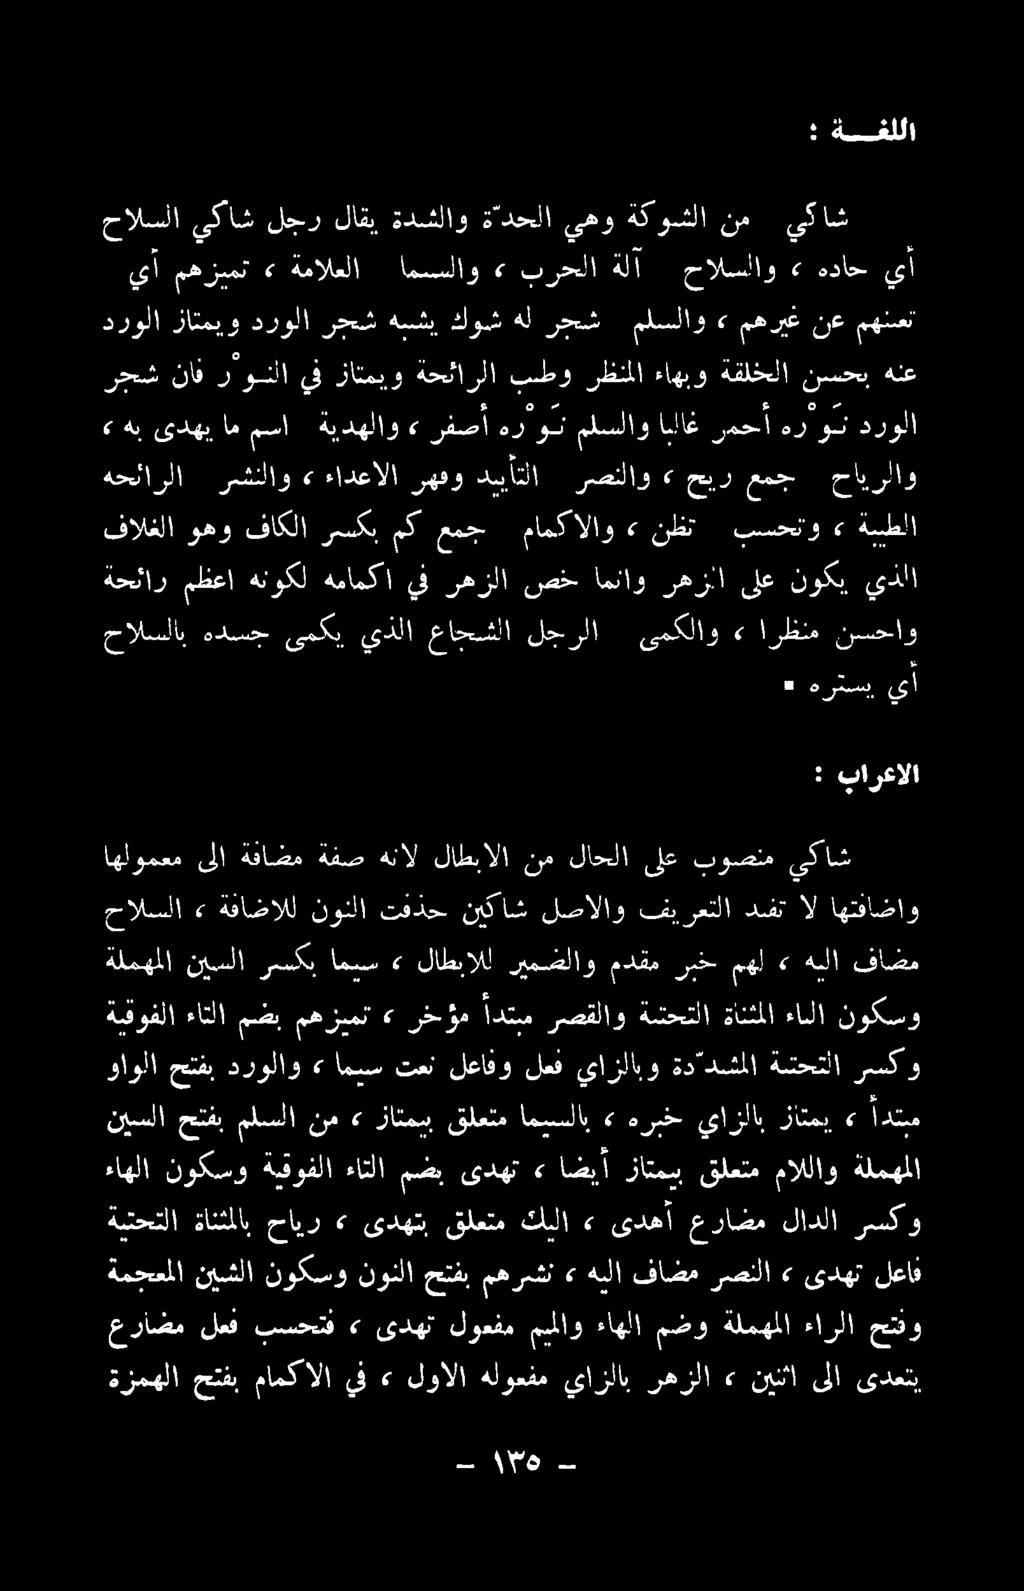 اللغـــة :
شاكي من الشوكة وهي الحدّة والشدة يقال رجل شاكي السلاح
أي حاده ، والسلاح آلة الحرب ، والسما العلامة ، تميزهم أي
تعنهم عن غيرهم ، والسلم شجر له شوك يشبه شجر الورد ويمتاز الورد
عنه بحسن الخلقة وبهاء المنظر وطب الرائحة ويمتاز في النـوْر فان شجر
الورد نَـوْره أحمر غالبا والسلم نَـوْره أصفر ، والهدية اسم ما يهدى به ،
والرياح جمع ريح ، والنصر التأييد وقهر الاعداء ، والنشر الرائحه
الطيبة ، وتحسب تظن ، والاكمام جمع كم بكسر الكاف وهو الغلاف
الذي يكون على الزهر وانما خص الزهر في اكمامه لكونه اعظم رائحة
واحسن منظرا ، والكمى الرجل الشجاع الذي يكمى جسده بالسلاح
أي يستره .
الاعراب :
شاكي منصوب على الحال من الابطال لانه صفة مضافة الى معمولها
واضافتها لا تفد التعريف والاصل شاكين حذفت النون للاضافة ، السلاح
مضاف اليه ، لهم خبر مقدم والضمير للابطال ، سيما بكسر السين المهملة
وسكون الياء المثناة التحتية والقصر مبتدأ مؤخر ، تميزهم بضم التاء الفوقية
وكسر التحتية المشدّدة وبالزاي فعل وفاعل نعت سيما ، والورد بفتح الواو
مبتدأ ، يمتاز بالزاي خبره ، بالسيما متعلق بيمتاز ، من السلم بفتح السين
المهملة واللام متعلق بيمتاز أيضا ، تهدى بضم التاء الفوقية وسكون الهاء
وكسر الدال مضارع أهدى ، اليك متعلق بتهدى ، رياح بالمثناة التحتية
فاعل تهدى ، النصر مضاف اليه ، نشرهم بفتح النون وسكون الشين المعجمة
وفتح الراء المهملة وضم الهاء والميم مفعول تهدى ، فتحسب فعل مضارع
يتعدى الى اثنين ، الزهر بالزاي مفعوله الاول ، في الاكمام بفتح الهمزة
– ١٣٥ –